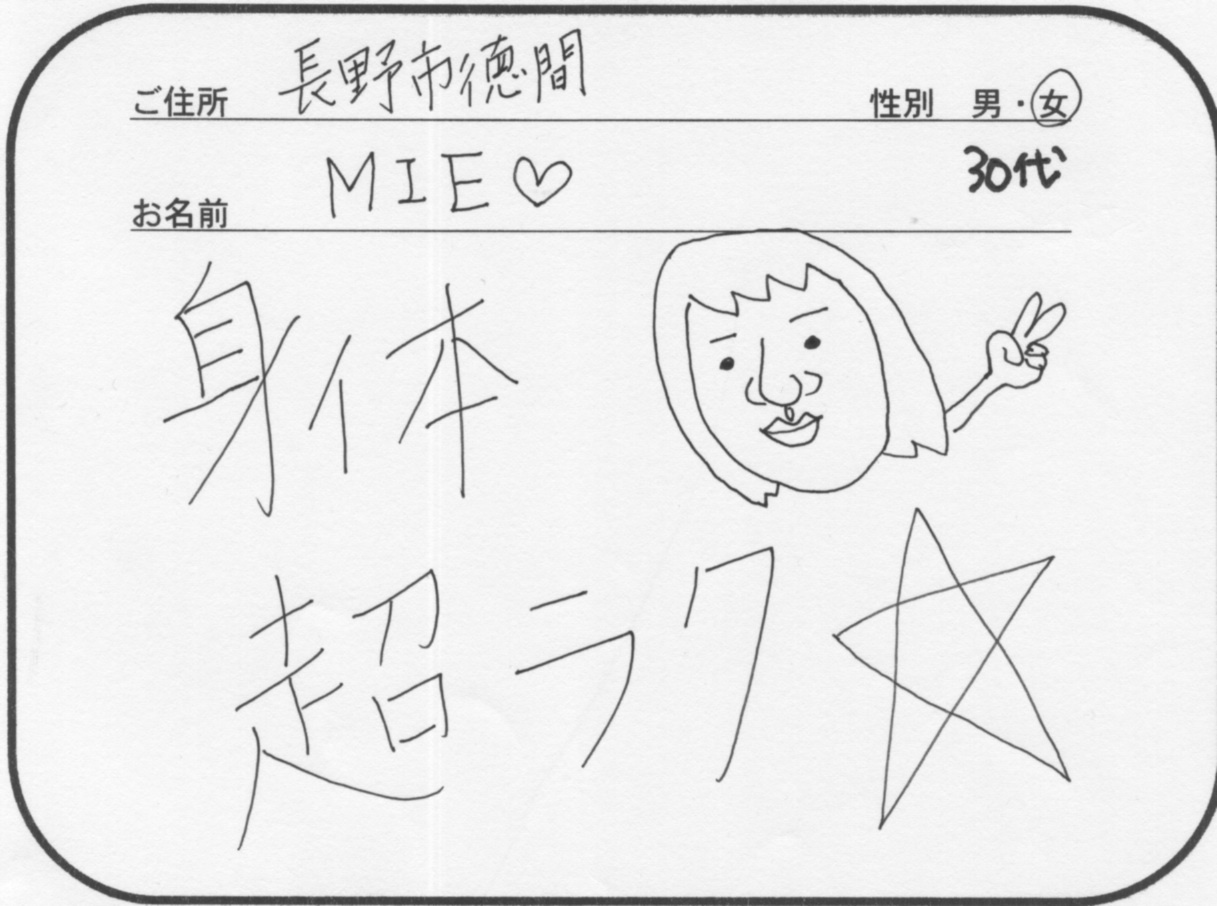 ご住所 長野市徳間 性別 男・女
30代
お名前 MIE♡
身体
超ラク☆